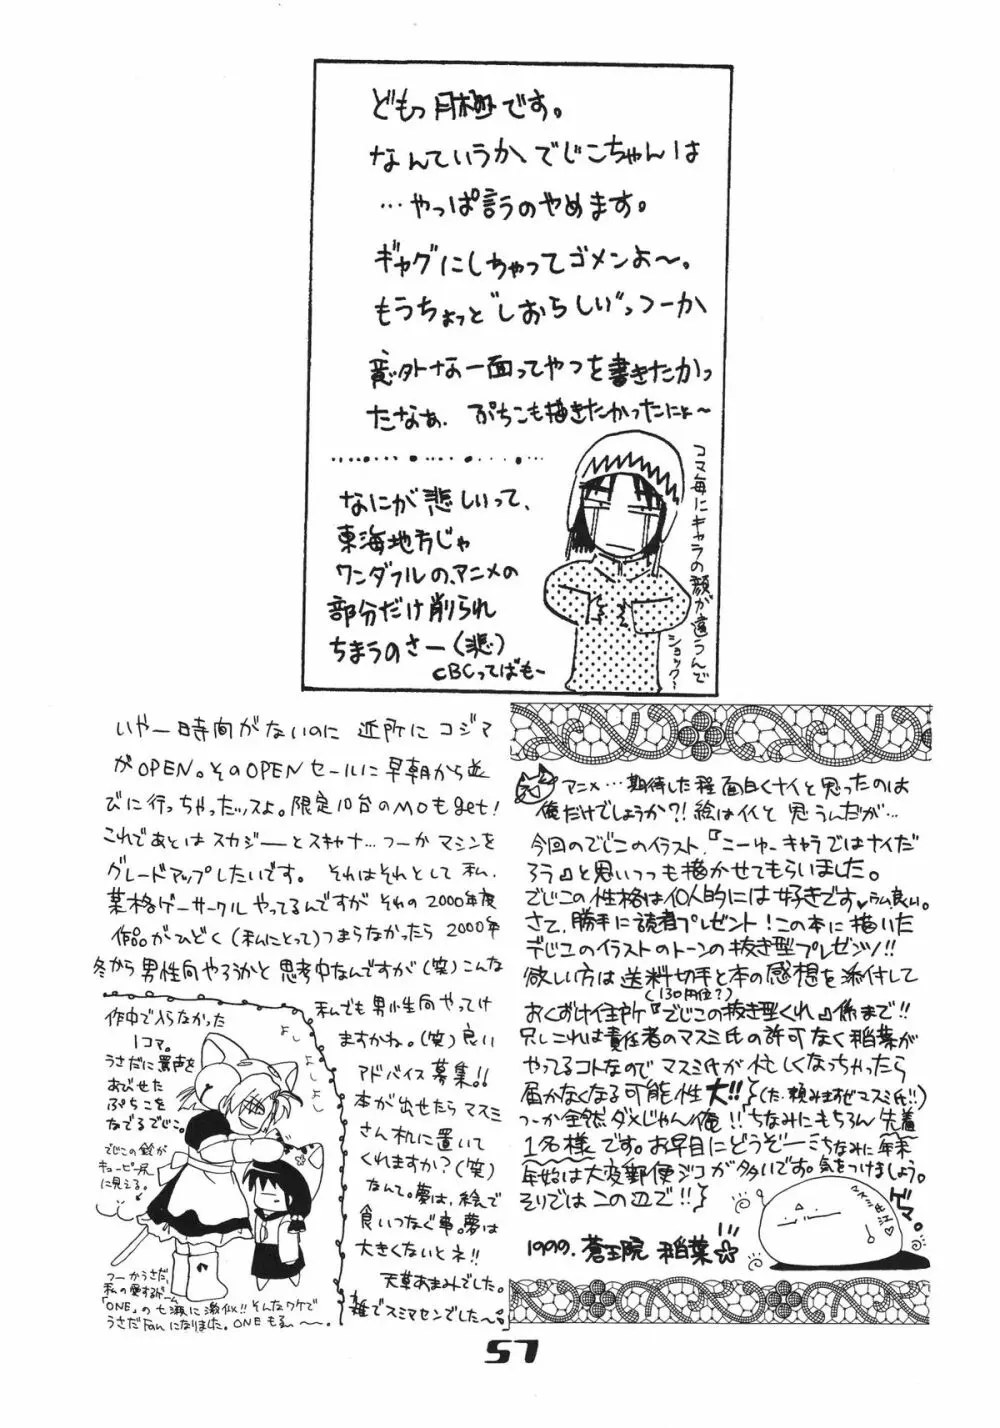 どもっ月極です。
なんていうか、でじこちゃんは
…やっぱ言うのやめます。
ギャグにしちゃってゴメンよ〜。
もうちょっと"しおらしい"っつーか
意外な一面ってやつを書きたかっ
たなぁ、ぷちこも描きたかったにょ〜
なにが悲しいって、
東海地方じゃ
ワンダフルの、アニメの
部分だけ削られ
ちまうのさー(悲)
CBCってばもー
コマ毎にキャラの顔が違うんで
ショック?
いやー時間がないのに 近所に コジマ
がOPEN。そのOPENセールに早朝から並
びに行っちゃだッスよ。限定10台のMOもget!
これであとは スカジーとスキャナ…つーか マシンを
グレードアップしたいです。 それはそれとして 私、
葉格ゲーサークル やってるんですが その 2000年度
作品がひどく(私にとって)つまらなかったら 2000年
冬から 男性向やろうかと 思考中なんですが(笑)こんな
私でも男性向やってけ
ますかね。(笑)良い
アドバイス募集!!
本が出せたら マスミ
さん机に置いて
くれますか?(笑)
なんて。夢は、絵で
食いつなぐ事。夢は
大きくないとネ!!
天草あまみでした。
雑でスミマセンでした〜。
作中で入らなかった
1コマ。
うさだに罵声を
あびせた
ぷちこを
なでるでじこ。
よしよし
よしよし
でじこの鈴が
キューピー尻
に見える。
つーかうさだ、
私の愛するゲーム
「ONE」の七瀬に激似!!そんなワケで
うさだfanになりました。ONEもえ〜。
アニメ…期待した程面白くナイと思ったのは
俺だけでしょうか?!絵はイイと思うんだが…
今回のでじこのイラスト、『こーゆーキャラではナイだ
ろう』と思いつつも描かせてもらいました。
でじこの性格は個人的には好きです♥
さて、勝手に読者プレゼント!この本に描いた
デじこのイラストのトーンの抜き型プレゼンツ!!
欲しい方は送料切手と本の感想を添付して
(130円位?)
おくずけ住所『でじこの抜き型くれ』係まで!!
但しこれは責任者のマスミ氏の許可なく稲葉が
やってるコトなので マスミ氏が忙しくなっちゃったら
届かなくなる可能性大!!(た、頼みますぜマスミ氏!!)
つーか全然ダメじゃん俺!!ちなみにもちろん先着
1名様です。お早目にどうぞーちなみに年末
年始は大変郵便ジコが多いです。気をつけましょう。
そりではこの辺で!!
1999. 蒼王院 稲葉
ゲマ。
57